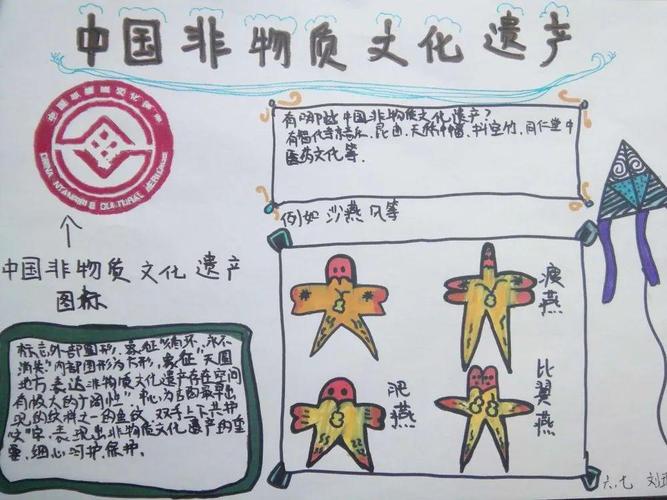 中国非物质文化遗产
中国非物质文化遗产
CHINA INTANGIBLE CULTURAL HERITAGE
有哪些中国非物质文化遗产?
有智化寺京音乐、昆曲、天桥中幡、抖空竹、同仁堂中
医药文化等.
例如 沙燕风等
中国非物质文化遗产
图标
标志外部图形,象征"循环,永不
消失"内部图形为方形,象征"天圆
地方,表达非物质文化遗产存在空间
有极大的广阔性",中心为古陶最早出
现的纹样之一的鱼纹,双手上下共护
"文"字,表现出非物质文化遗产的重
要,细心呵护,保护.
瘦燕
肥燕
比翼燕
六、七 刘